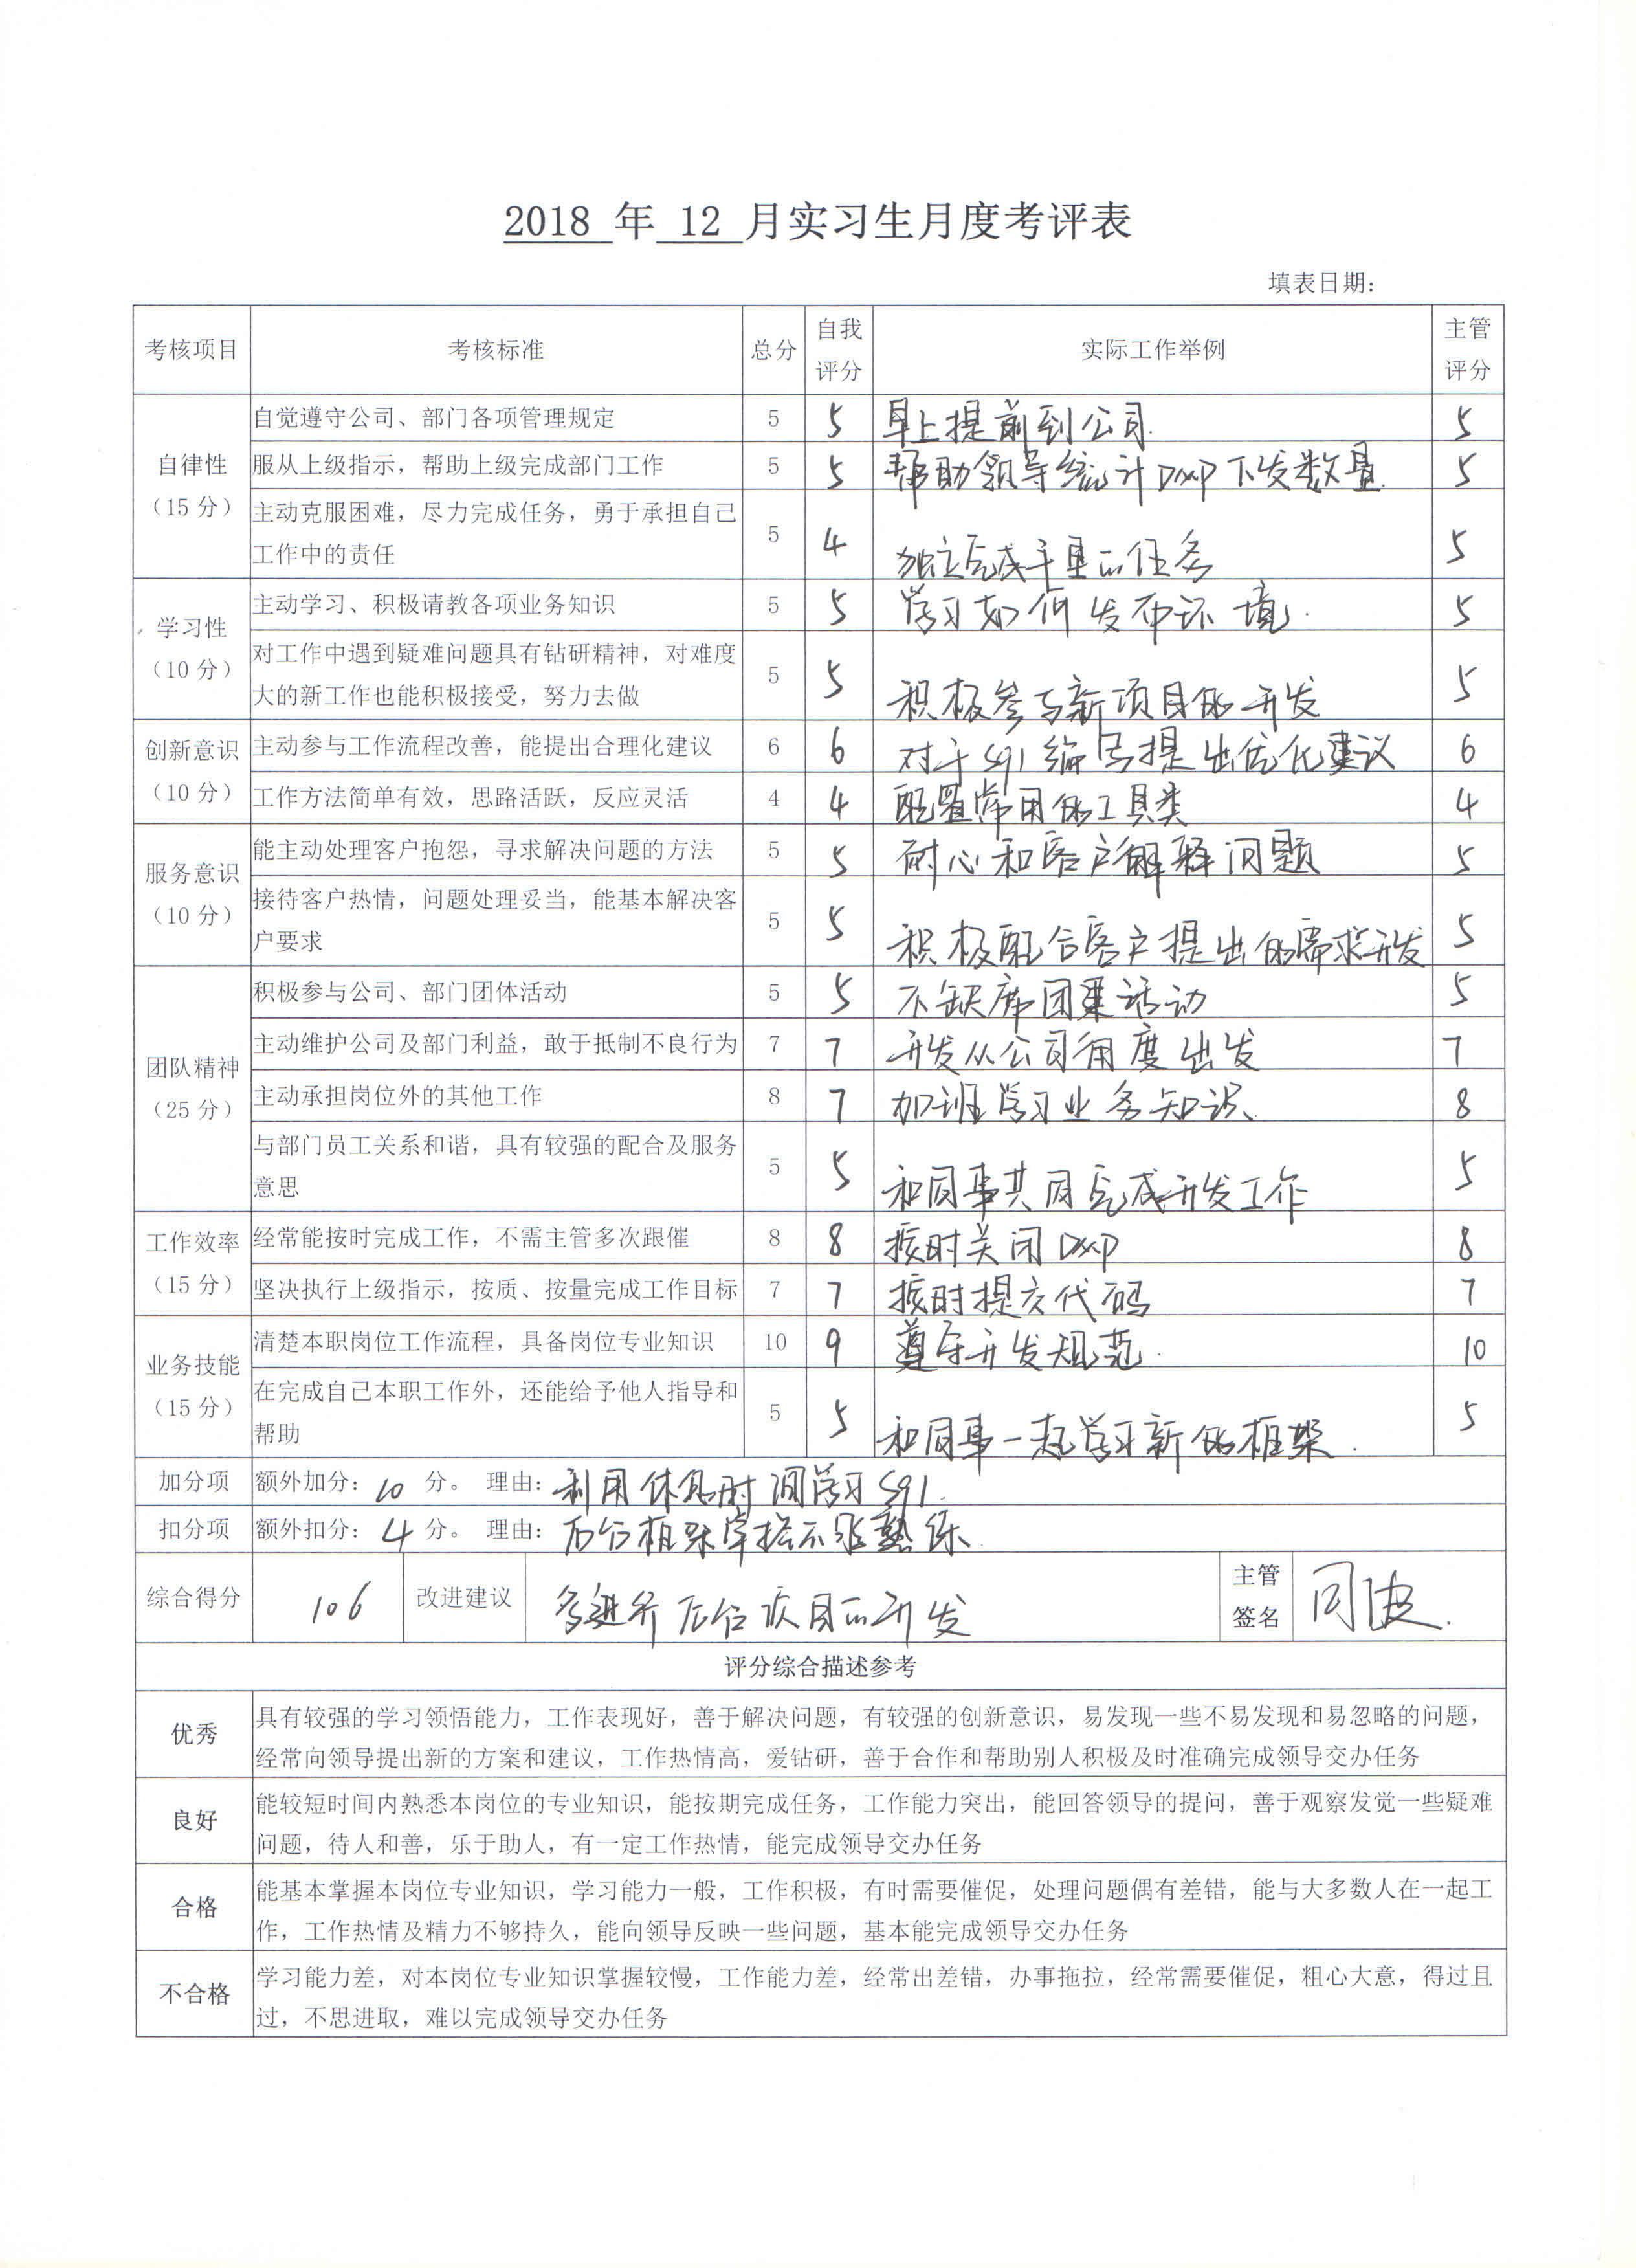 2018 年 12 月实习生月度考评表
填表日期：
考核项目 考核标准 总分 自我评分 实际工作举例 主管评分
自律性（15 分）
自觉遵守公司、部门各项管理规定 5 5 早上提前到公司. 5
服从上级指示，帮助上级完成部门工作 5 5 帮助领导统计 下发数量. 5
主动克服困难，尽力完成任务，勇于承担自己
工作中的责任 5 4 独立完成 任务 5
学习性（10 分）
主动学习、积极请教各项业务知识 5 5 学习如何发布环境. 5
对工作中遇到疑难问题具有钻研精神，对难度
大的新工作也能积极接受，努力去做 5 5 积极参与新项目的开发 5
创新意识（10 分）
主动参与工作流程改善，能提出合理化建议 6 6 对于sql编写提出优化建议 6
工作方法简单有效，思路活跃，反应灵活 4 4 配置常用的工具类 4
服务意识（10 分）
能主动处理客户抱怨，寻求解决问题的方法 5 5 耐心和客户解释问题 5
接待客户热情，问题处理妥当，能基本解决客
户要求 5 5 积极配合客户提出的需求开发 5
团队精神（25 分）
积极参与公司、部门团体活动 5 5 不缺席团建活动 5
主动维护公司及部门利益，敢于抵制不良行为 7 7 开发从公司角度出发 7
主动承担岗位外的其他工作 8 7 加班学习业务知识 8
与部门员工关系和谐，具有较强的配合及服务
意思 5 5 和同事共同完成开发工作 5
工作效率（15 分）
经常能按时完成工作，不需主管多次跟催 8 8 按时关闭 8
坚决执行上级指示，按质、按量完成工作目标 7 7 按时提交代码 7
业务技能（15 分）
清楚本职岗位工作流程，具备岗位专业知识 10 9 遵守开发规范. 10
在完成自己本职工作外，还能给予他人指导和
帮助 5 5 和同事一起学习新的框架. 5
加分项 额外加分：10 分。 理由：利用休息时间学习sql.
扣分项 额外扣分：4 分。 理由：后台框架掌握不够熟练.
综合得分 106 改进建议 多进行后台项目的开发 主管签名
评分综合描述参考
优秀
具有较强的学习领悟能力，工作表现好，善于解决问题，有较强的创新意识，易发现一些不易发现和易忽略的问题，
经常向领导提出新的方案和建议，工作热情高，爱钻研，善于合作和帮助别人积极及时准确完成领导交办任务
良好
能较短时间内熟悉本岗位的专业知识，能按期完成任务，工作能力突出，能回答领导的提问，善于观察发觉一些疑难
问题，待人和善，乐于助人，有一定工作热情，能完成领导交办任务
合格
能基本掌握本岗位专业知识，学习能力一般，工作积极，有时需要催促，处理问题偶有差错，能与大多数人在一起工
作，工作热情及精力不够持久，能向领导反映一些问题，基本能完成领导交办任务
不合格
学习能力差，对本岗位专业知识掌握较慢，工作能力差，经常出差错，办事拖拉，经常需要催促，粗心大意，得过且
过，不思进取，难以完成领导交办任务